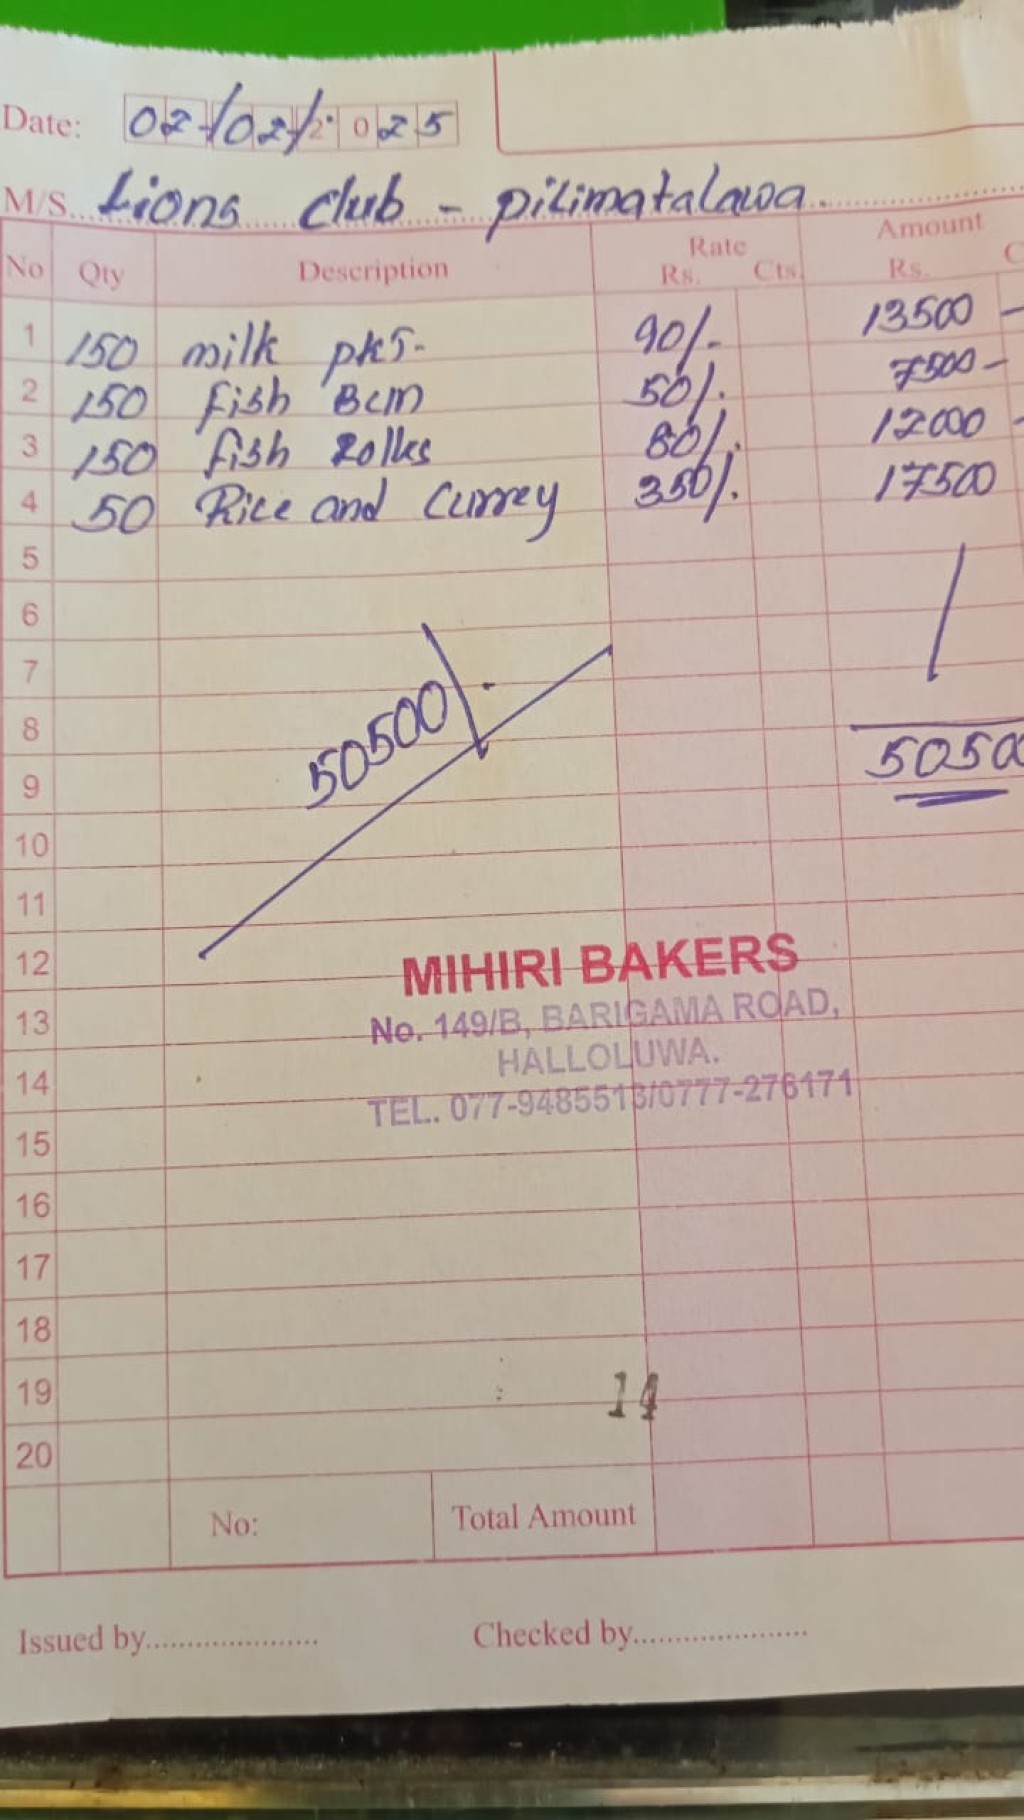 Date: 02/02/2025
M/S. Lions Club - Pilimatalawa.
No Qty Description Rate Rs. Cts. Amount Rs. C
1 150 milk pkts- 90/- 13500 -
2 150 Fish Bun 50/- 7500 -
3 150 fish Rolls 80/- 12000 -
4 50 Rice and Currey 350/- 17500
5
6
7
50500/-
8
9 5050
10
11
12
MIHIRI BAKERS
13
No. 149/B, BARIGAMA ROAD,
HALLOLUWA.
14
TEL.. 077-9485513/0777-276171
15
16
17
18
19 14
20
No: Total Amount
Issued by..................... Checked by.....................